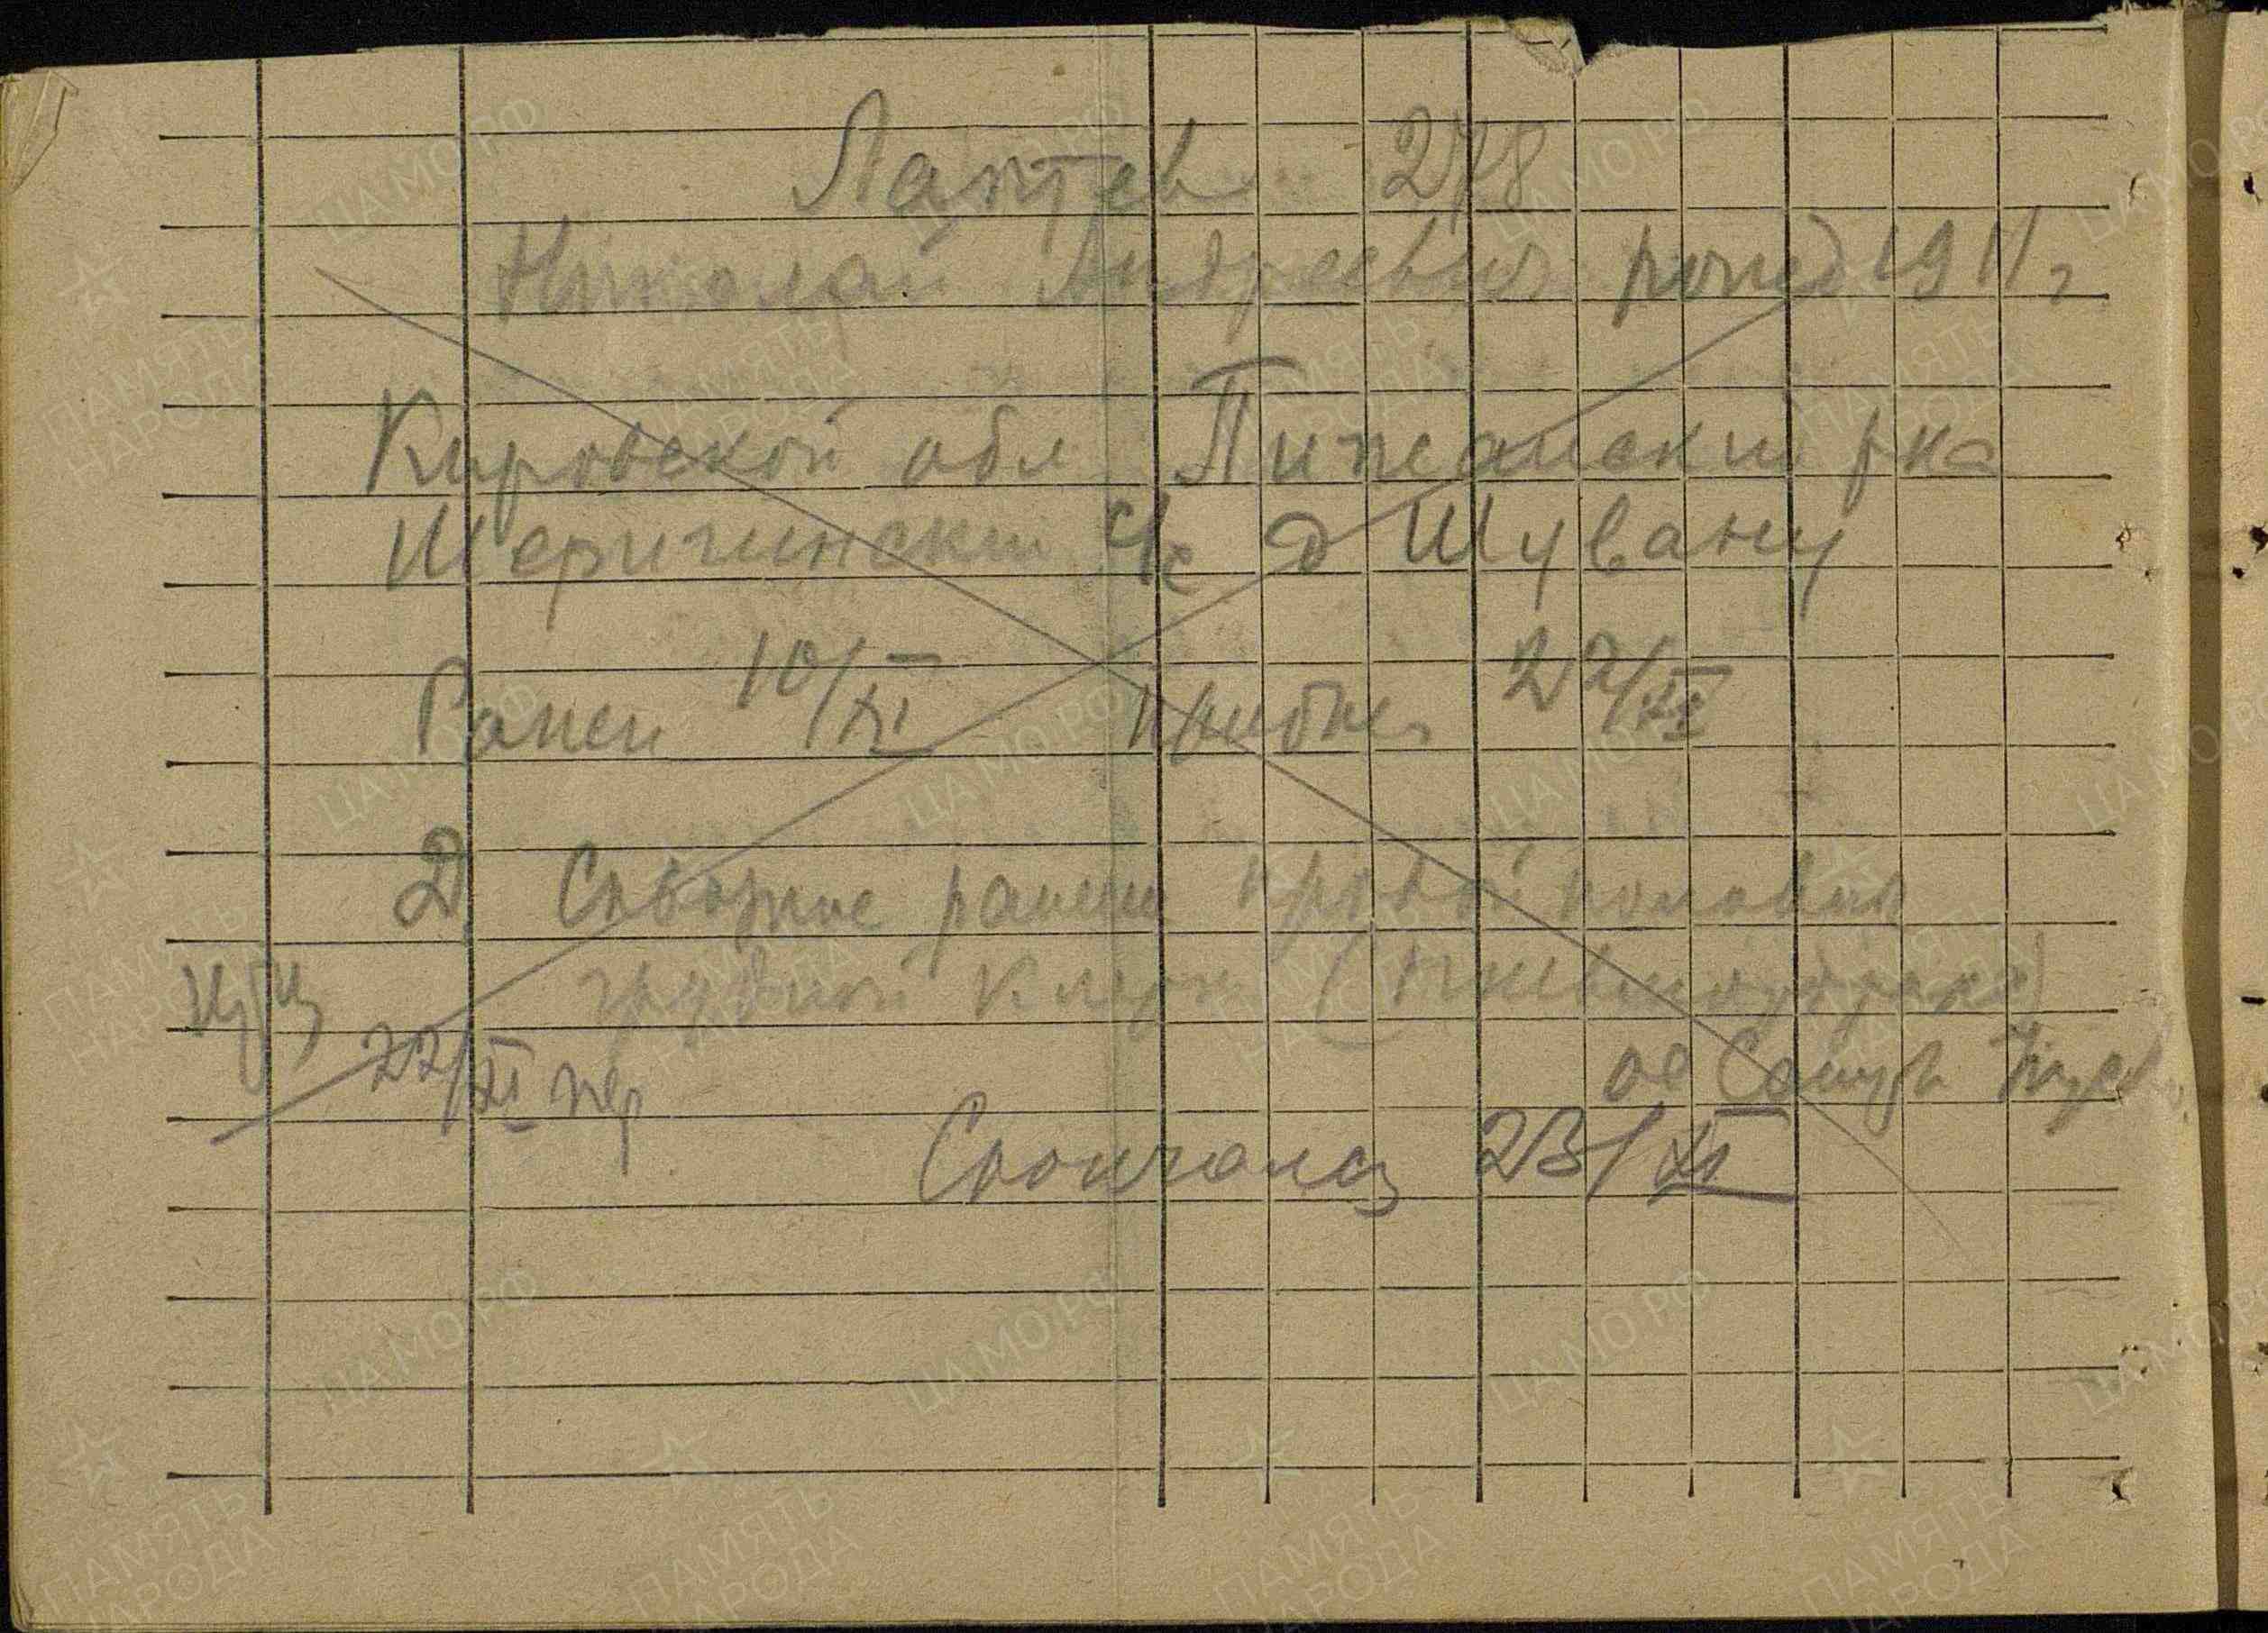 Лаптев 278
Николай Андреевич рожд 1911 г
Кировской обл Пижанский р-на
Шеричинский с/с д Шувану
Ранен 10/XI прибыл 22/XI
Д. Сквозное ранени правой половин
грудной клетк (пневмоторакс)
22/XI пер
Скончался 23/XI